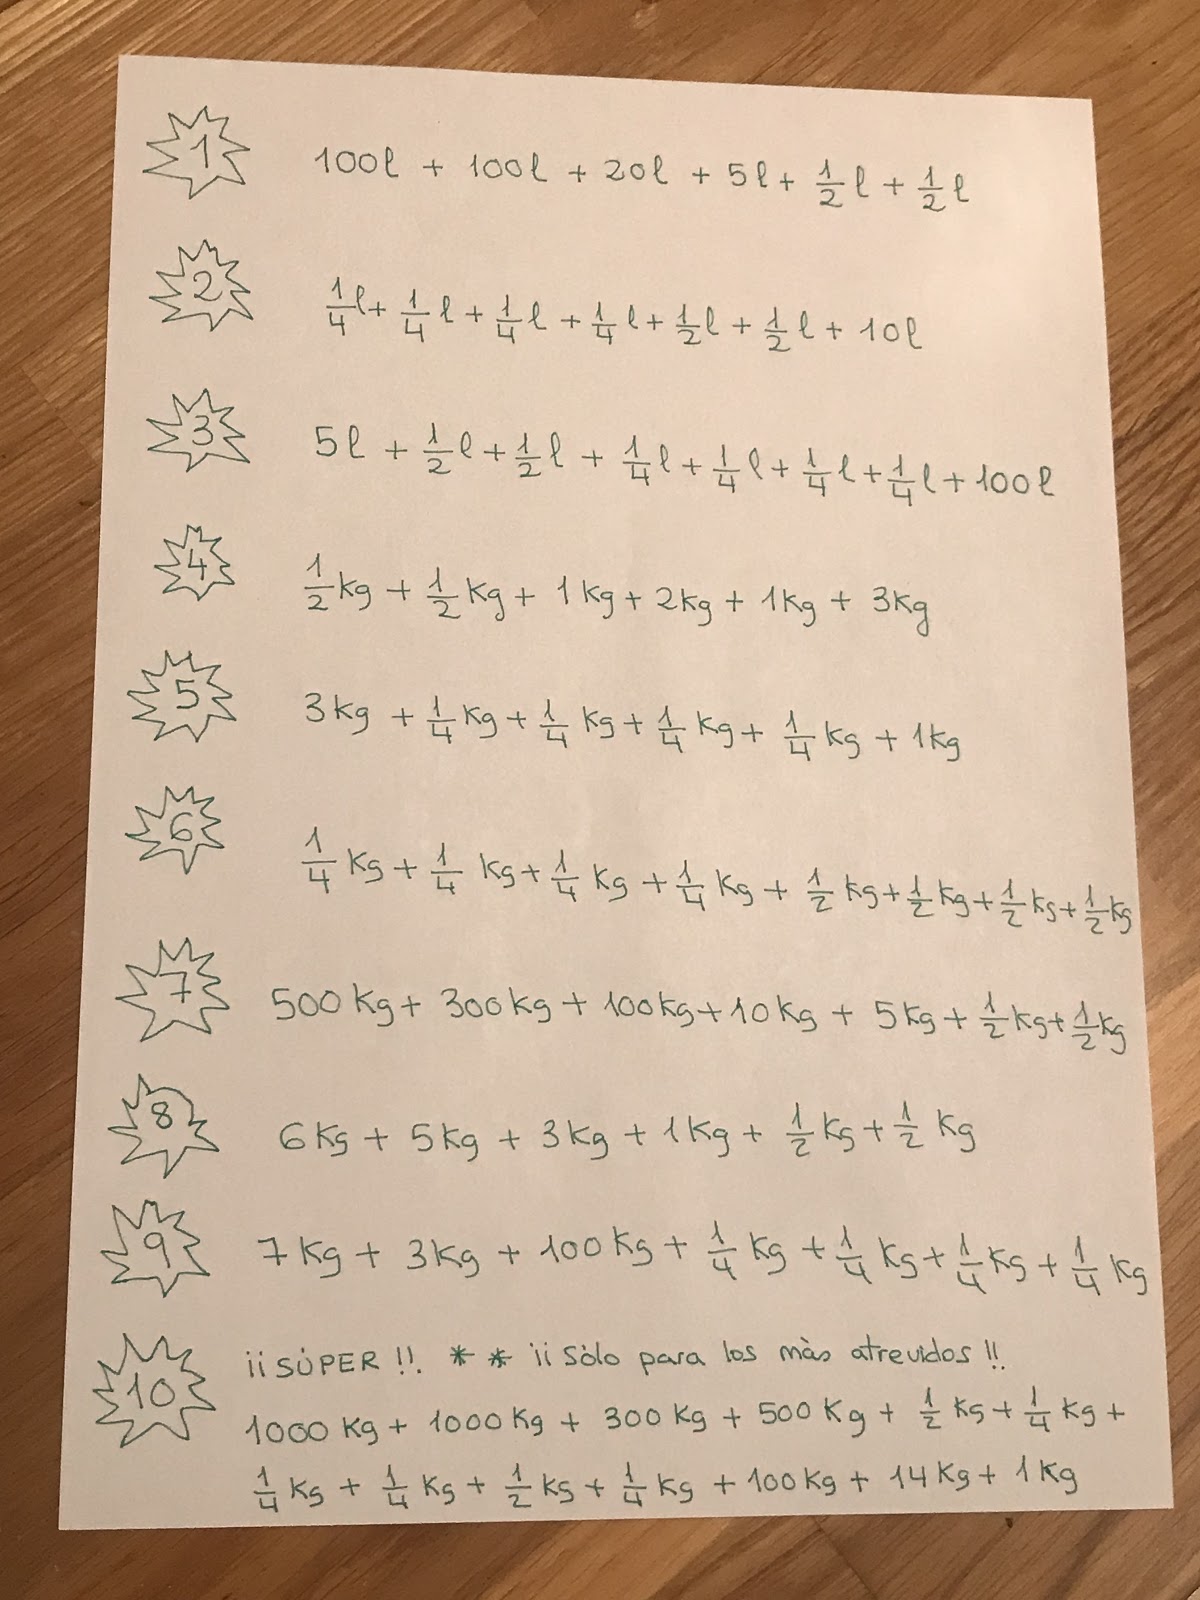 1 100l + 100l + 20l + 5l + 1/2 l + 1/2 l
2 1/4 l + 1/4 l + 1/4 l + 1/4 l + 1/2 l + 1/2 l + 10l
3 5l + 1/2 l + 1/2 l + 1/4 l + 1/4 l + 1/4 l + 1/4 l + 100l
4 1/2 kg + 1/2 kg + 1kg + 2kg + 1kg + 3kg
5 3kg + 1/4 kg + 1/4 kg + 1/4 kg + 1/4 kg + 1kg
6 1/4 kg + 1/4 kg + 1/4 kg + 1/4 kg + 1/2 kg + 1/2 kg + 1/2 kg + 1/2 kg
7 500kg + 300kg + 100kg + 10kg + 5kg + 1/2 kg + 1/2 kg
8 6kg + 5kg + 3kg + 1kg + 1/2 kg + 1/2 kg
9 7kg + 3kg + 100kg + 1/4 kg + 1/4 kg + 1/4 kg + 1/4 kg
10 ¡¡SÚPER!!. * * ¡¡Sòlo para los màs atrevidos!!.
1000kg + 1000kg + 300kg + 500kg + 1/2 kg + 1/4 kg +
1/4 kg + 1/4 kg + 1/2 kg + 1/4 kg + 100kg + 14kg + 1kg